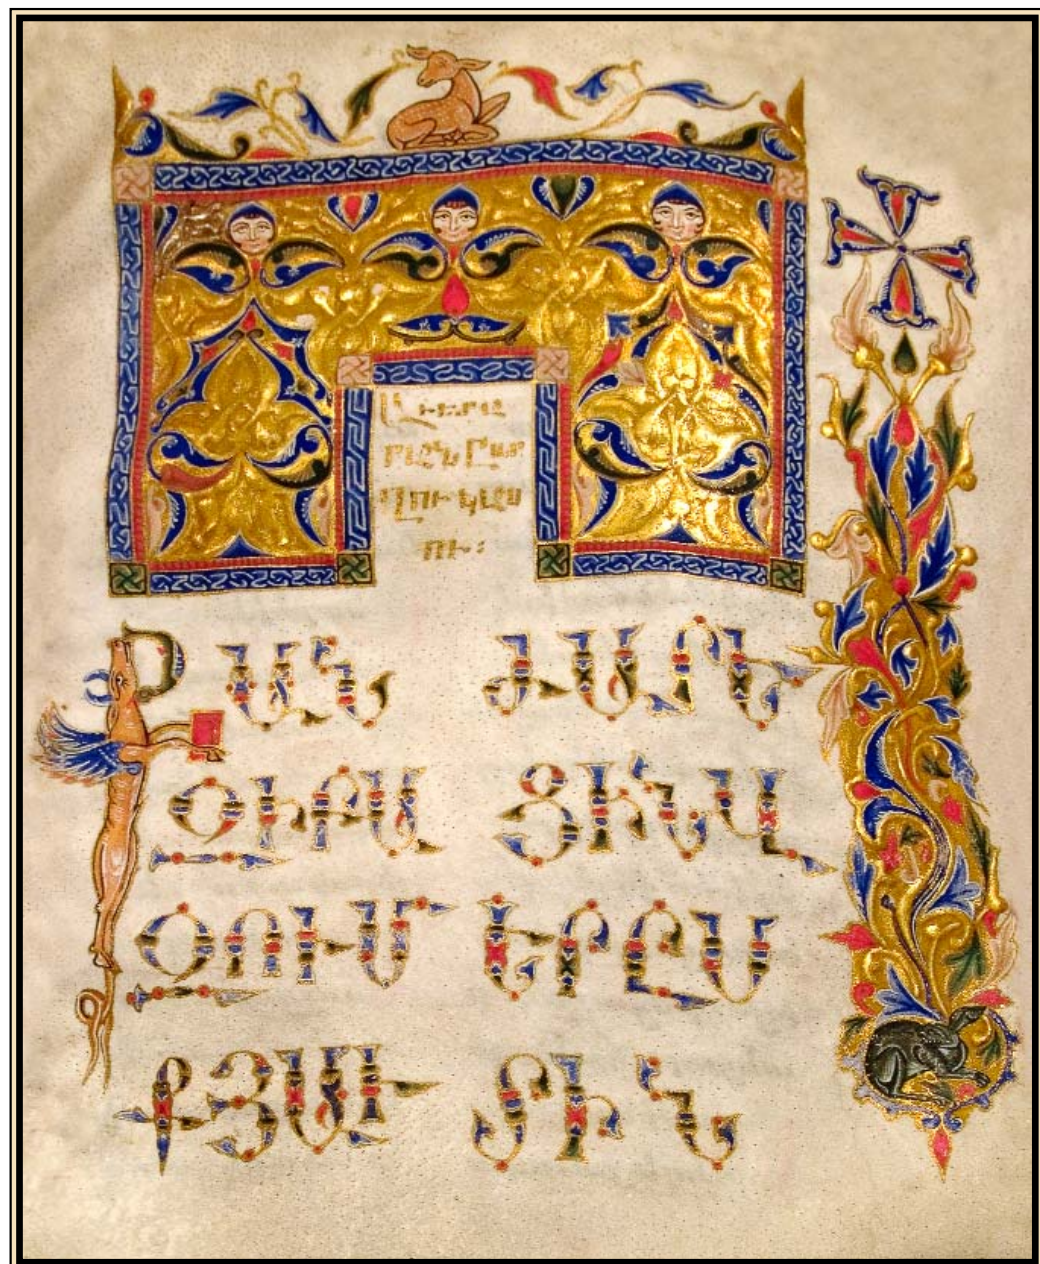 Աւետա
րանԸստ
Ղուկաս
ու։
ՔԱՆ
ԶԻԲԱ
ԶՈՒՄ
ՔՅԱՒ
ԺԱՐԵ
ՑԻՆՎ
ԵՐԸՍ
ՏԻՆ